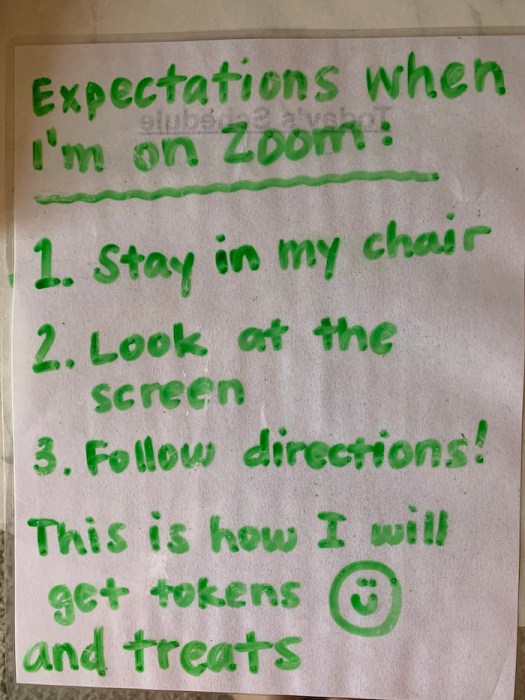 Expectations when
I'm on Zoom:
Today's Schedule
1. Stay in my chair
2. Look at the
screen
3. Follow directions!
This is how I will
get tokens
and treats